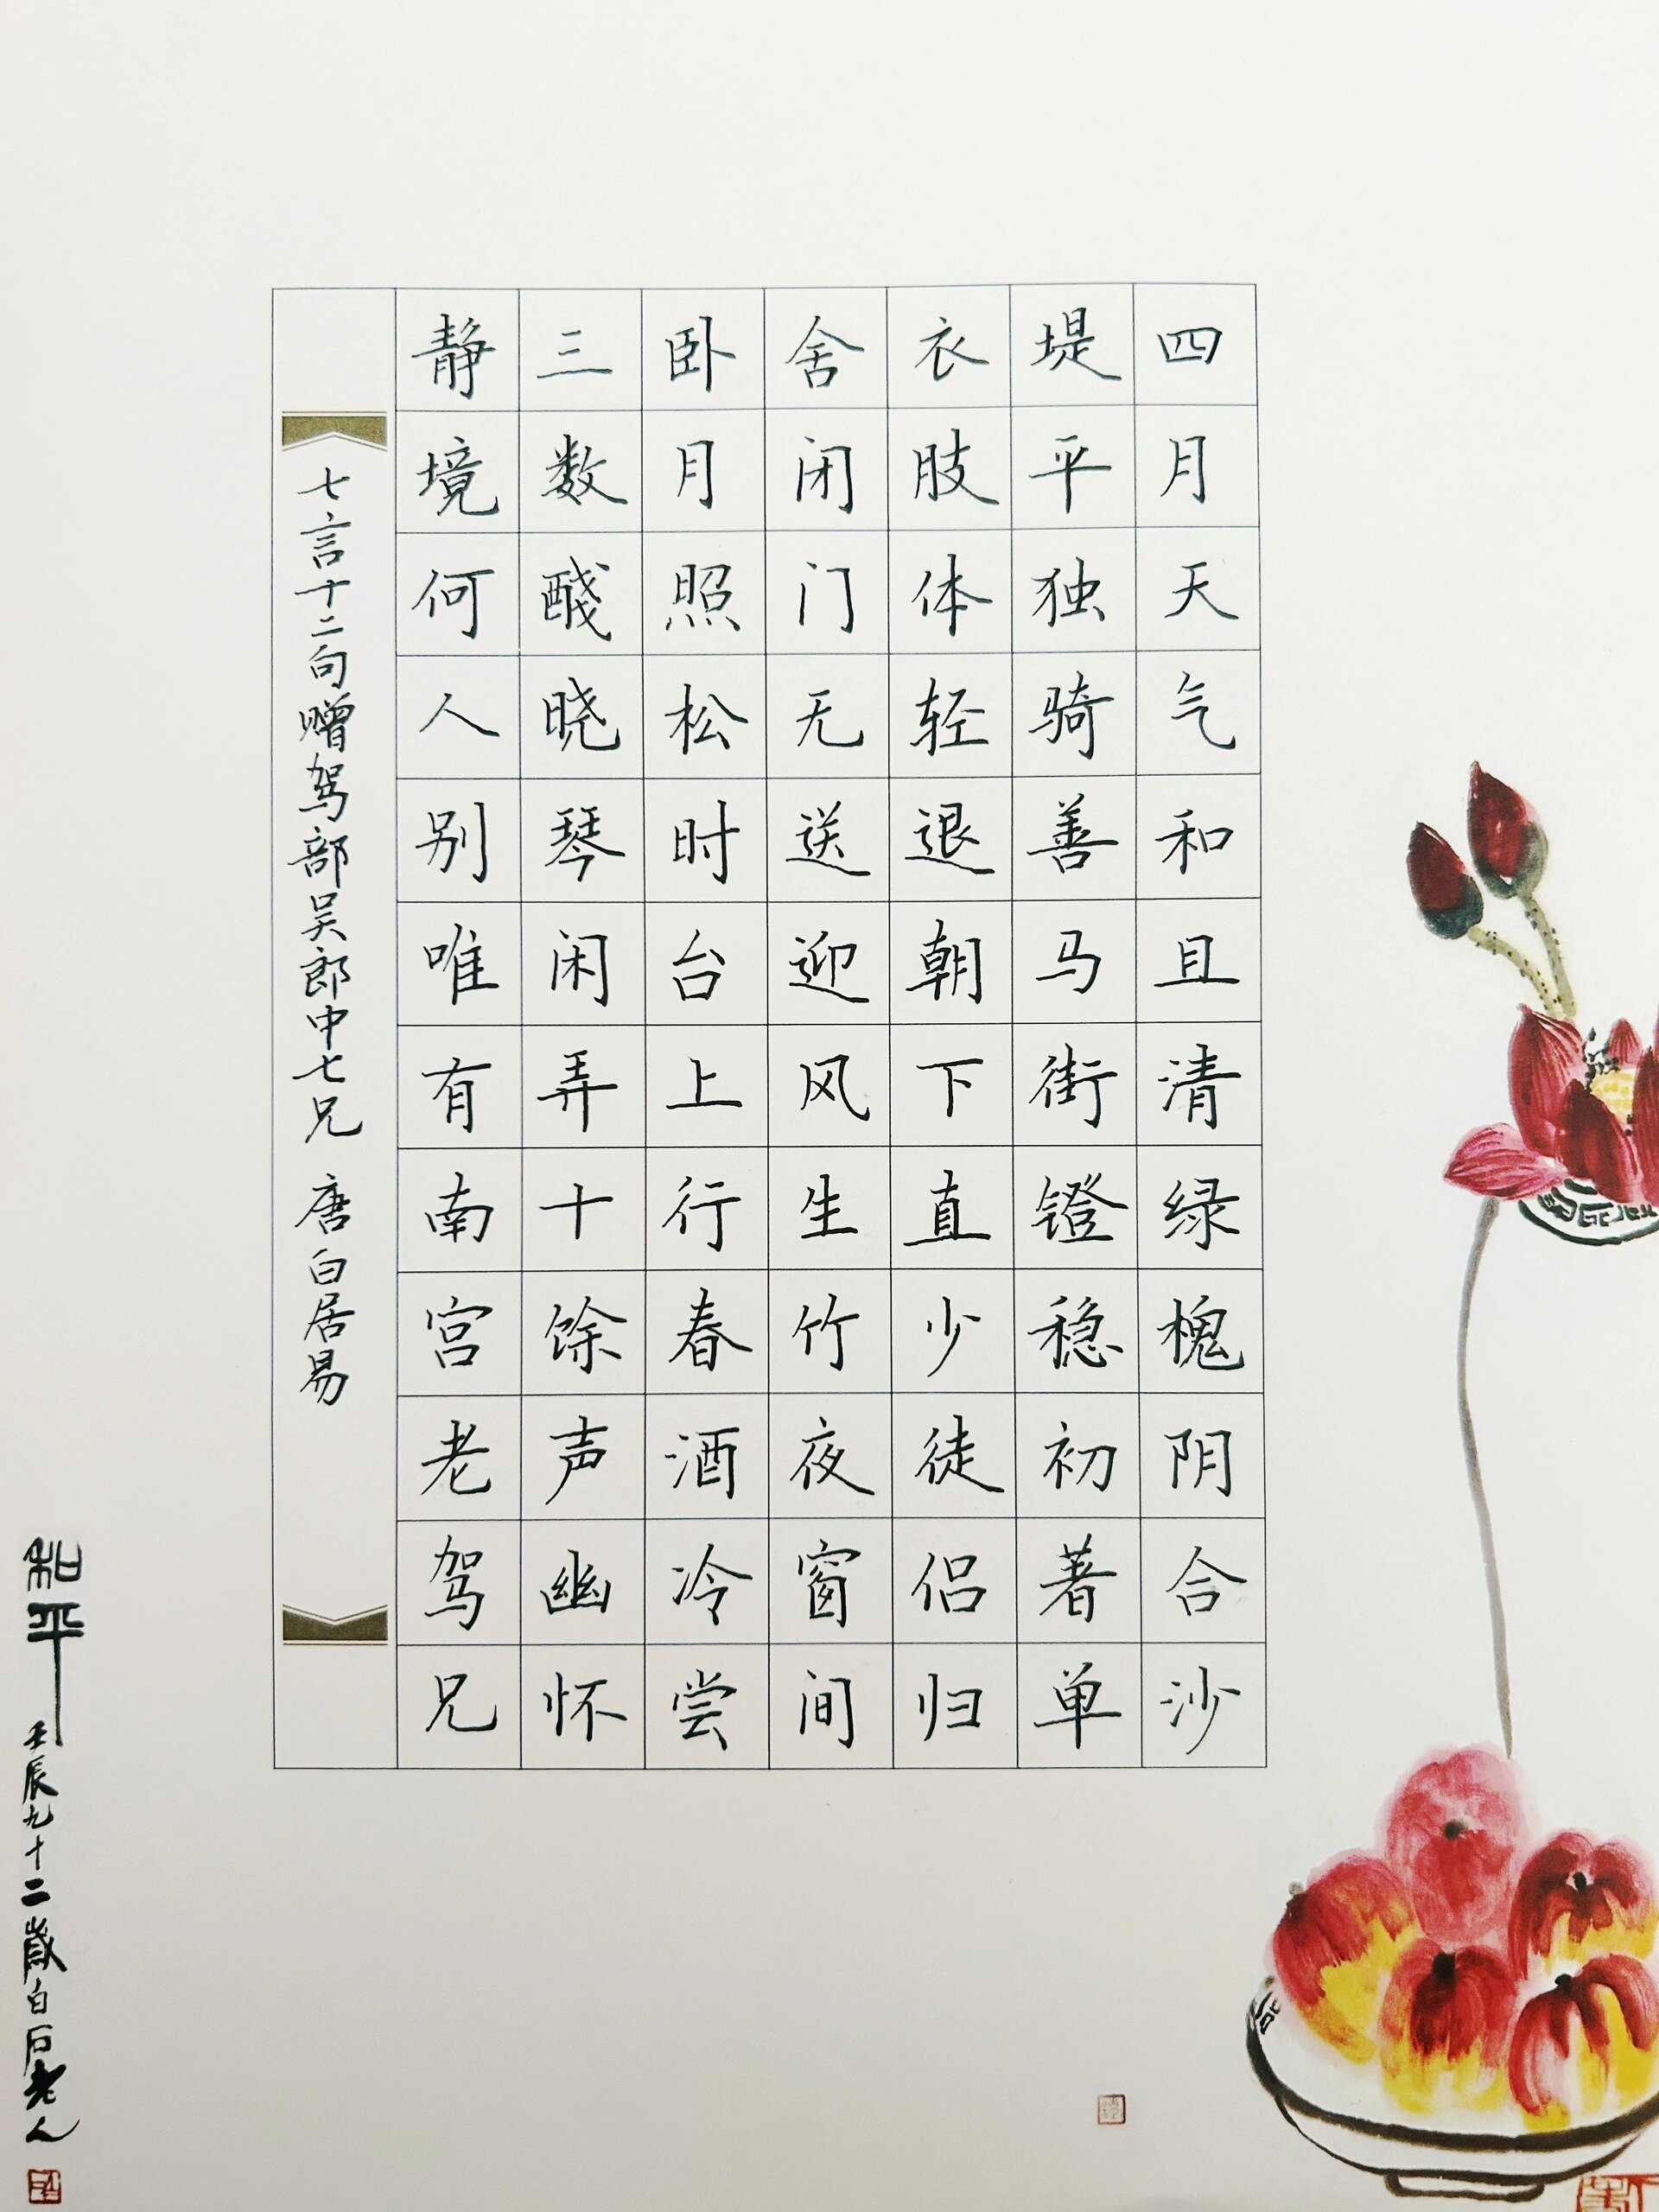 四月天气和且清绿槐阴合沙
堤平独骑善马衔镫稳初著单
衣肢体轻退朝下直少徒侣归
舍闭门无送迎风生竹夜窗间
卧月照松时台上行春酒冷尝
三数醆晓琴闲弄十馀声幽怀
静境何人别唯有南宫老驾兄
七言十二句赠驾部吴郎中七兄 唐白居易
和平
壬辰九十二岁白石老人